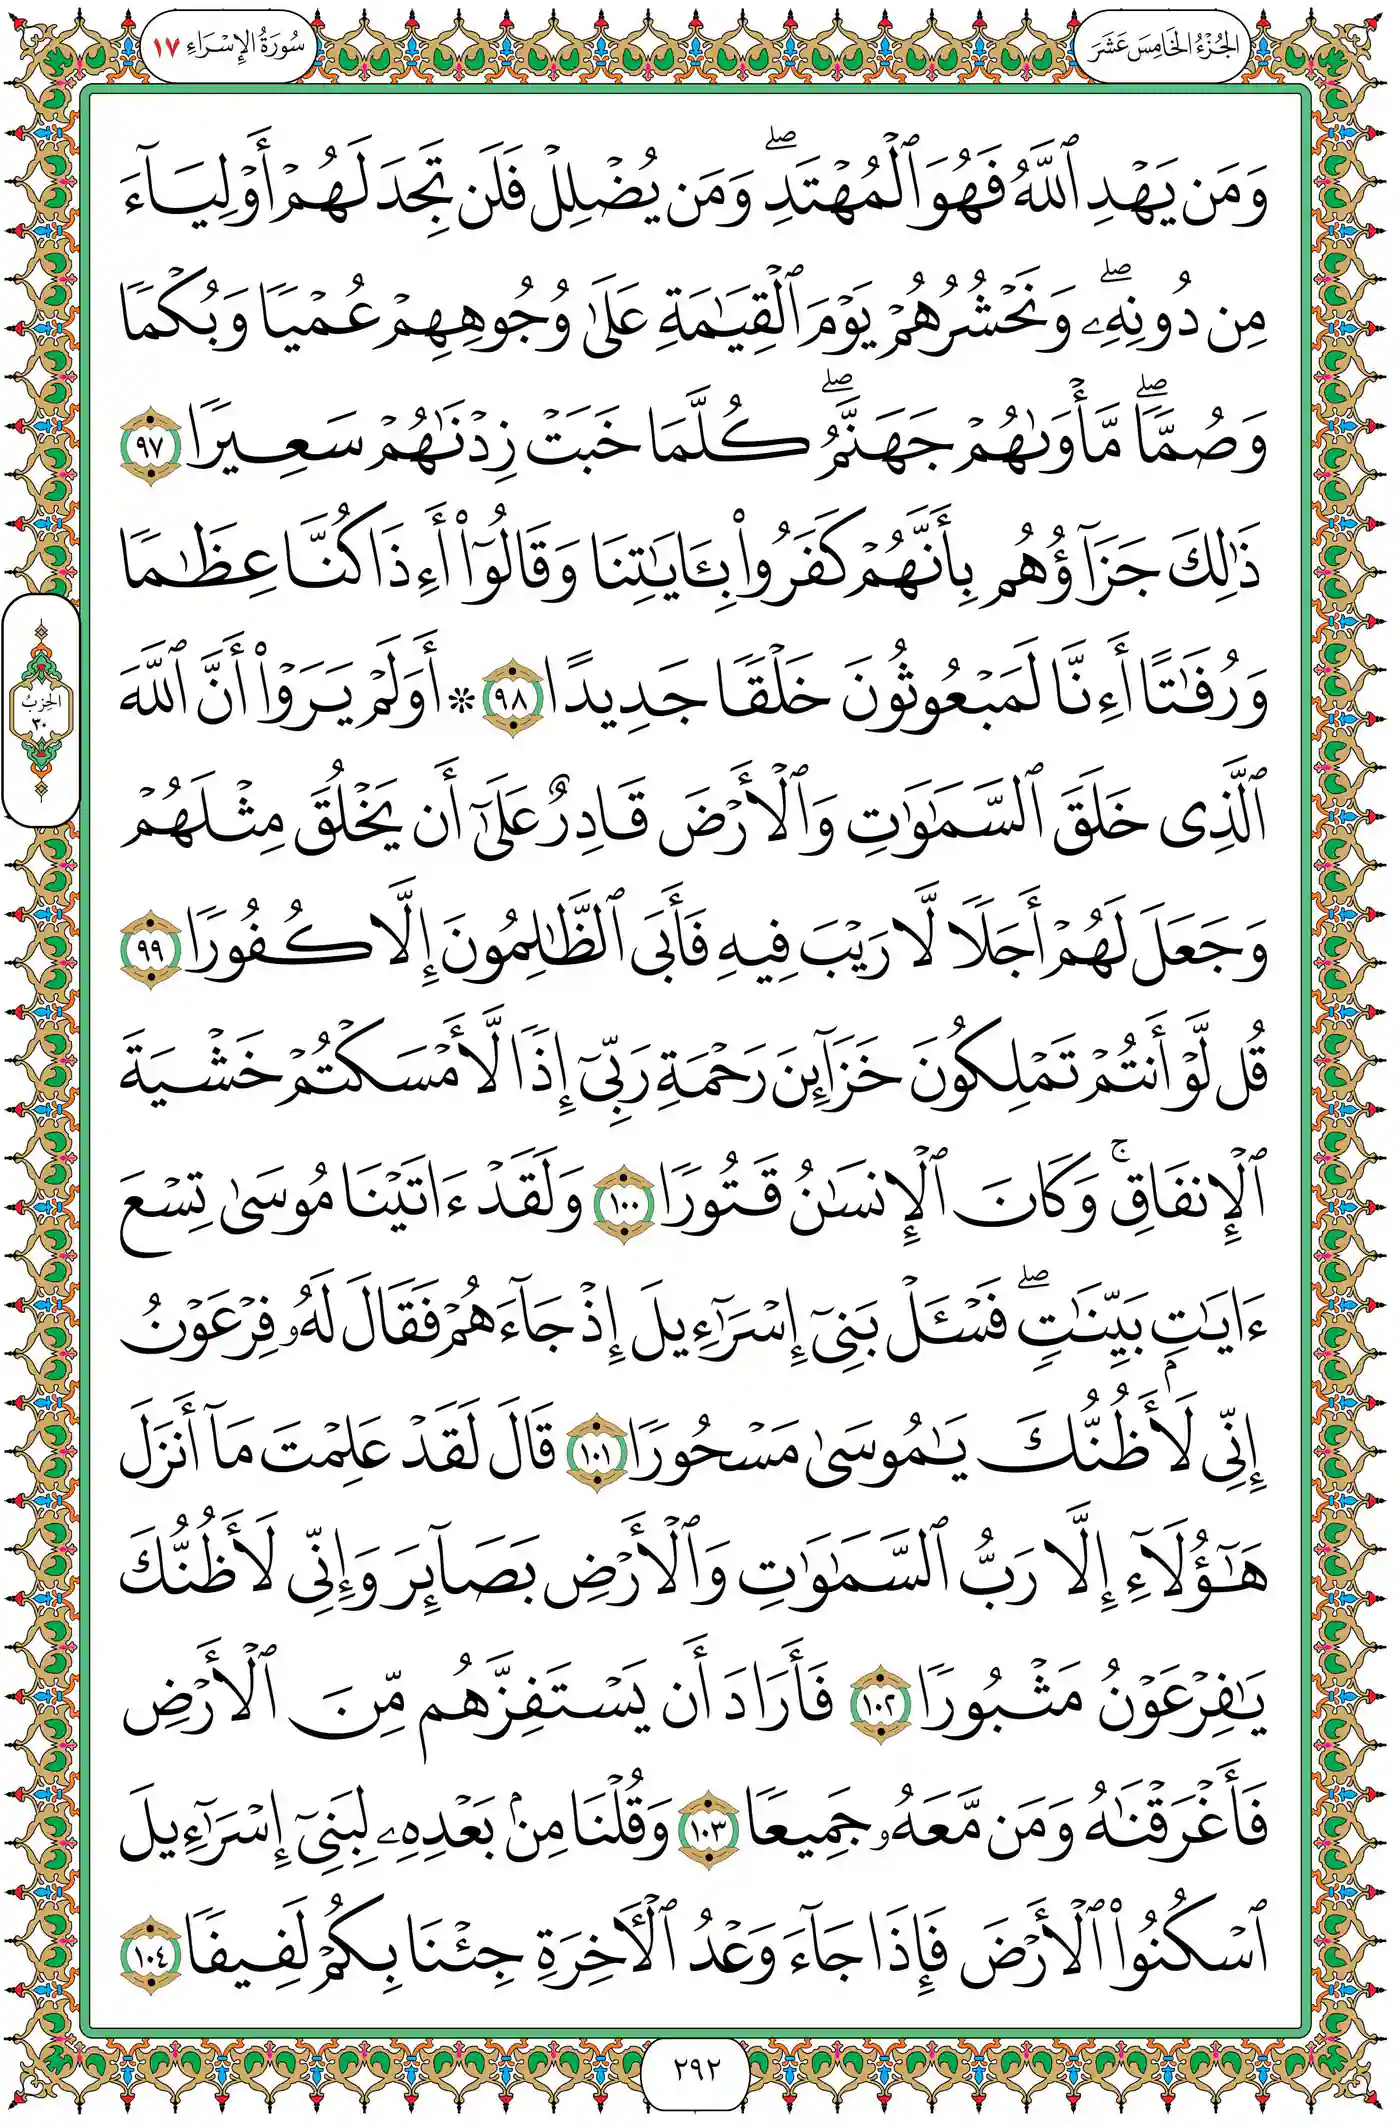 الجُزْءُ الخَامِسَ عَشَرَ
سُورَةُ الإِسْرَاءِ ١٧
وَمَن يَهْدِ ٱللَّهُ فَهُوَ ٱلْمُهْتَدِۖ وَمَن يُضْلِلْ فَلَن تَجِدَ لَهُمْ أَوْلِيَآءَ
مِن دُونِهِۦۖ وَنَحْشُرُهُمْ يَوْمَ ٱلْقِيَٰمَةِ عَلَىٰ وُجُوهِهِمْ عُمْيًا وَبُكْمًا
وَصُمًّاۖ مَّأْوَىٰهُمْ جَهَنَّمُۖ كُلَّمَا خَبَتْ زِدْنَٰهُمْ سَعِيرًا ٩٧
ذَٰلِكَ جَزَآؤُهُم بِأَنَّهُمْ كَفَرُوا۟ بِـَٔايَٰتِنَا وَقَالُوٓا۟ أَءِذَا كُنَّا عِظَٰمًا
وَرُفَٰتًا أَءِنَّا لَمَبْعُوثُونَ خَلْقًا جَدِيدًا ٩٨ ۞ أَوَلَمْ يَرَوْا۟ أَنَّ ٱللَّهَ
ٱلَّذِى خَلَقَ ٱلسَّمَٰوَٰتِ وَٱلْأَرْضَ قَادِرٌ عَلَىٰٓ أَن يَخْلُقَ مِثْلَهُمْ
وَجَعَلَ لَهُمْ أَجَلًا لَّا رَيْبَ فِيهِ فَأَبَى ٱلظَّٰلِمُونَ إِلَّا كُفُورًا ٩٩
قُل لَّوْ أَنتُمْ تَمْلِكُونَ خَزَآئِنَ رَحْمَةِ رَبِّىٓ إِذًا لَّأَمْسَكْتُمْ خَشْيَةَ
ٱلْإِنفَاقِۚ وَكَانَ ٱلْإِنسَٰنُ قَتُورًا ١٠٠ وَلَقَدْ ءَاتَيْنَا مُوسَىٰ تِسْعَ
ءَايَٰتٍۭ بَيِّنَٰتٍۖ فَسْـَٔلْ بَنِىٓ إِسْرَٰٓءِيلَ إِذْ جَآءَهُمْ فَقَالَ لَهُۥ فِرْعَوْنُ
إِنِّى لَأَظُنُّكَ يَٰمُوسَىٰ مَسْحُورًا ١٠١ قَالَ لَقَدْ عَلِمْتَ مَآ أَنزَلَ
هَٰٓؤُلَآءِ إِلَّا رَبُّ ٱلسَّمَٰوَٰتِ وَٱلْأَرْضِ بَصَآئِرَ وَإِنِّى لَأَظُنُّكَ
يَٰفِرْعَوْنُ مَثْبُورًا ١٠٢ فَأَرَادَ أَن يَسْتَفِزَّهُم مِّنَ ٱلْأَرْضِ
فَأَغْرَقْنَٰهُ وَمَن مَّعَهُۥ جَمِيعًا ١٠٣ وَقُلْنَا مِنۢ بَعْدِهِۦ لِبَنِىٓ إِسْرَٰٓءِيلَ
ٱسْكُنُوا۟ ٱلْأَرْضَ فَإِذَا جَآءَ وَعْدُ ٱلْـَٔاخِرَةِ جِئْنَا بِكُمْ لَفِيفًا ١٠٤
الحِزْبُ
٣٠
٢٩٢